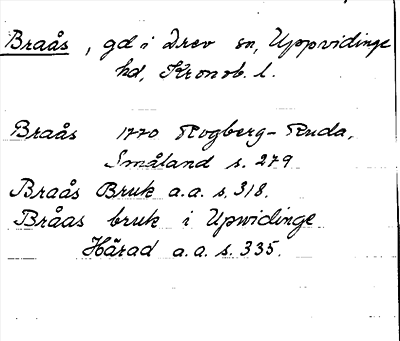 Braås, gd i Drev sn, Uppvidinge
hd, Kronob. l.
Braås 1770 Rogberg-Ruda,
Småland s. 279
Braås Bruk a.a. s. 318.
Bråas bruk i Upwidinge
Härad a.a. s. 335.